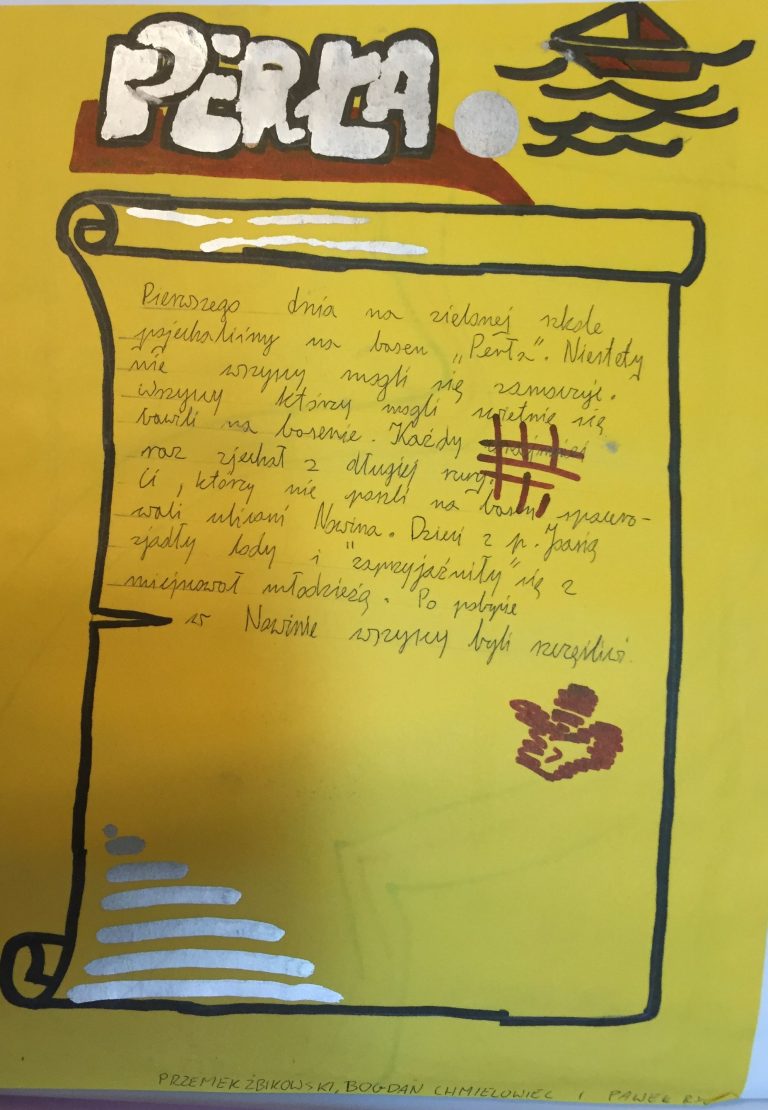 PERŁA
Pierwszego dnia na zielonej szkole
pojechaliśmy na basen „Perła". Niestety
nie wszyscy mogli się zanurzyć.
wszyscy którzy mogli świetnie się
bawili na basenie. Każdy
raz zjechał z długiej rury
Ci, którzy nie poszli na basen spacero-
wali ulicami Nowina. Dzieci z p. Joasią
zjadły lody i "zaprzyjaźniły" się z
miejscową młodzieżą. Po pobycie
w Nowinie wszyscy byli szczęśliwi.
PRZEMEK ŻBIKOWSKI, BOGDAN CHMIELOWIEC I PAWEŁ